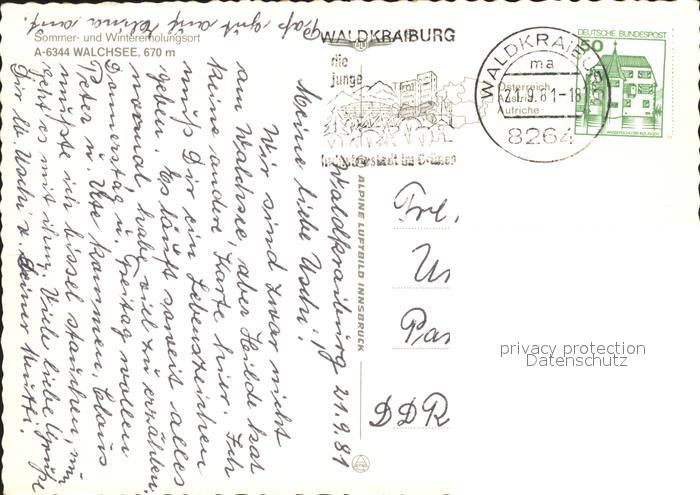 Sommer- und Wintererholungsort
A-6344 WALCHSEE, 670 m
WALDKRAIBURG
die
junge
Industriestadt im Grünen
WALDKRAIBURG
ma
21.9.81-18
8264
Österreich
Autriche
DEUTSCHE BUNDESPOST
50
WASSERSCHLOSS INZLINGEN
ALPINE LUFTBILD INNSBRUCK
Waldkraiburg 21.9.81
Meine liebe Uschi!
Wir sind zwar nicht
am Walchsee, aber Heide hat
keine andere Karte hier. Ich
muß Dir ein Lebenszeichen
geben. Es läuft soweit alles
normal, habe viel zu erzählen.
Donnerstag u. Freitag wollen
Peter u. Ute kommen, Claus
mußte ein bissel staunen, nun
geht es mit ihm. Viele liebe Grüße
Dir lb. Uschi v. Deiner Mutti.
paß gut auf auf
Frl.
Us
Pas
DDR
privacy protection
Datenschutz